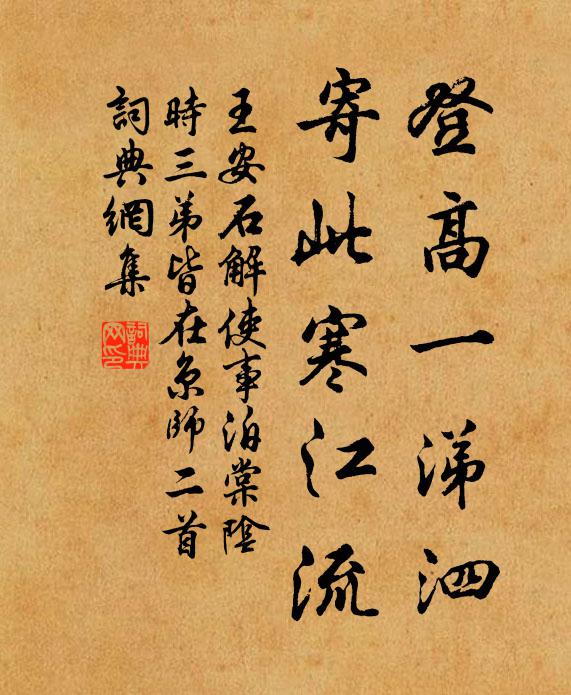 登高一涕泗
寄此寒江流
王安石解使事泊棠陰
時三弟皆在京師二首
詞典網集
詞典网印